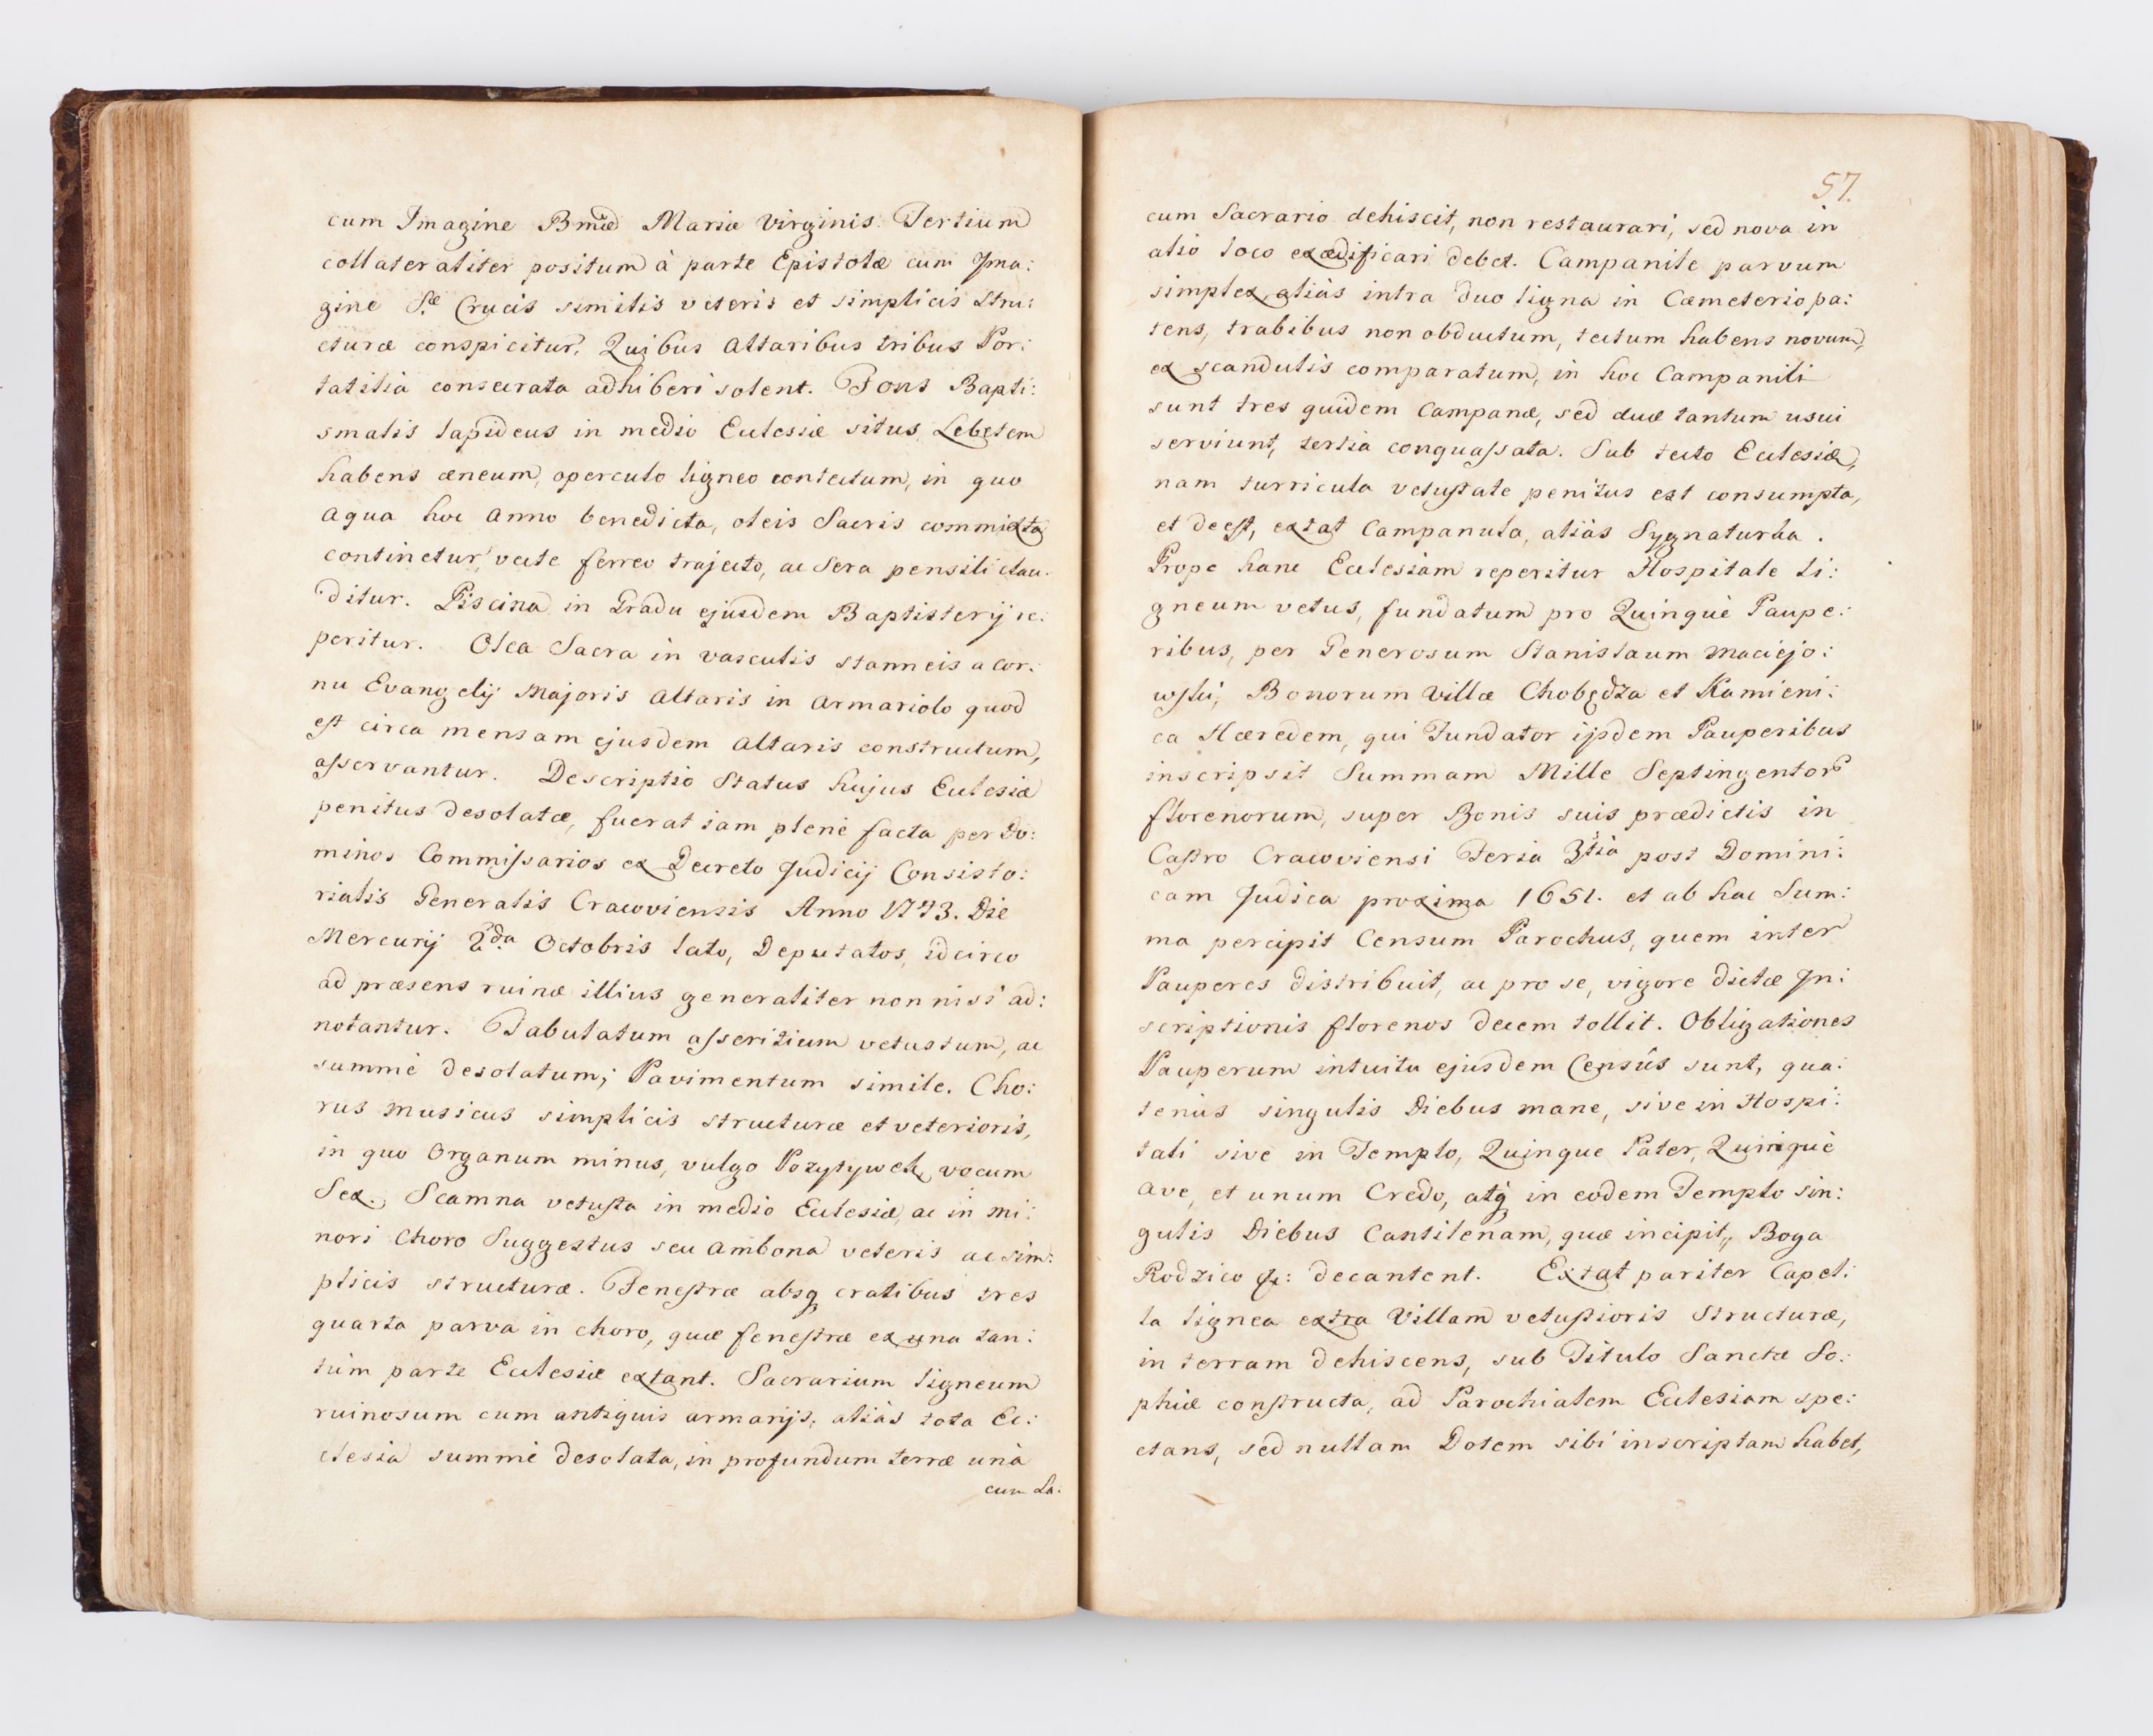 cum Imagine Bmæ Mariæ Virginis. Tertium
collateraliter positum à parte Epistolæ cum Ima:
gine S.æ Crucis similis veteris et simplicis Stru:
cturæ conspicitur. Quibus Altaribus tribus Por:
tatilia consecrata adhiberi solent. Fons Bapti:
smalis lapideus in medio Ecclesiæ situs, Lebetem
habens æneum, operculo ligneo contectum, in quo
Aqua hoc Anno benedicta, oleis Sacris commixta
continetur, vecte ferreo trajecto, ac Sera pensili clau:
ditur. Piscina in Gradu ejusdem Baptisterij re:
peritur. Olea Sacra in vasculis stanneis a Cor:
nu Evangelij Majoris Altaris in Armariolo quod
est circa mensam ejusdem Altaris constructum,
asservantur. Descriptio Status hujus Ecclesiæ
penitus desolatæ, fuerat iam plenè facta per Do:
minos Commissarios ex Decreto Judicij Consisto:
rialis Generalis Cracoviensis Anno 1743. Die
Mercurij 2.da Octobris lato, Deputatos, idcirco
ad præsens ruinæ illius generaliter non nisi ad:
notantur. Tabulatum asseritium vetustum, ac
summè desolatum; Pavimentum simile. Cho:
rus Musicus simplicis structuræ et veterioris,
in quo Organum minus, vulgo Pozytywek, vocum
Sex. Scamna vetusta in medio Ecclesiæ, ac in Mi:
nori Choro Suggestus seu Ambona veteris ac sim:
plicis structuræ. Fenestræ absq cratibus tres
quarta parva in choro, quæ fenestræ ex una tan:
tùm parte Ecclesiæ extant. Sacrarium ligneum
ruinosum cum antiquis armarijs, aliàs tota Ec:
clesia summè desolata, in profundum terræ unà
cum Sa:
57.
cum Sacrario dehiscit, non restaurari, sed nova in
alio loco exædificari debet. Campanile parvum
simplex, aliàs intra duo ligna in Cæmeterio pa:
tens, trabibus non obductum, tectum habens novum,
ex scandulis comparatum, in hoc Campanili
sunt tres quidem Campanæ, sed duæ tantum usui
serviunt, tertia conquassata. Sub tecto Ecclesiæ,
nam turricula vetustate penitus est consumpta,
et deest, extat Campanula, aliàs Sygnaturka.
Prope hanc Ecclesiam reperitur Hospitale li:
gneum vetus, fundatum pro Quinquè Paupe:
ribus, per Generosum Stanislaum Maciejo:
wski, Bonorum Villæ Chobędza et Kamieni:
ca Hæredem, qui Fundator ijsdem Pauperibus
inscripsit Summam Mille Septingentor
florenorum, super Bonis suis prædictis in
Castro Cracoviensi Feria 3tià post Domini:
cam Judica proxima 1651. et ab hac Sum:
ma percipit Censum Parochus, quem inter
Pauperes distribuit, ac pro se, vigore dictæ In:
scriptionis florenos decem tollit. Obligationes
Pauperum intuitu ejusdem Censûs sunt, qua:
tenùs singulis Diebus mane, sive in Hospi:
tali sive in Templo, Quinque Pater, Quinquè
Ave, et unum Credo, atq in eodem Templo sin:
gulis Diebus Cantilenam, quæ incipit,, Boga
Rodzico &: decantent. Extat pariter Capel:
la lignea extra Villam vetustioris Structuræ,
in terram dehiscens, sub Titulo Sanctæ So:
phiæ constructa, ad Parochialem Ecclesiam spe:
ctans, sed nullam Dotem sibi inscriptam habet,